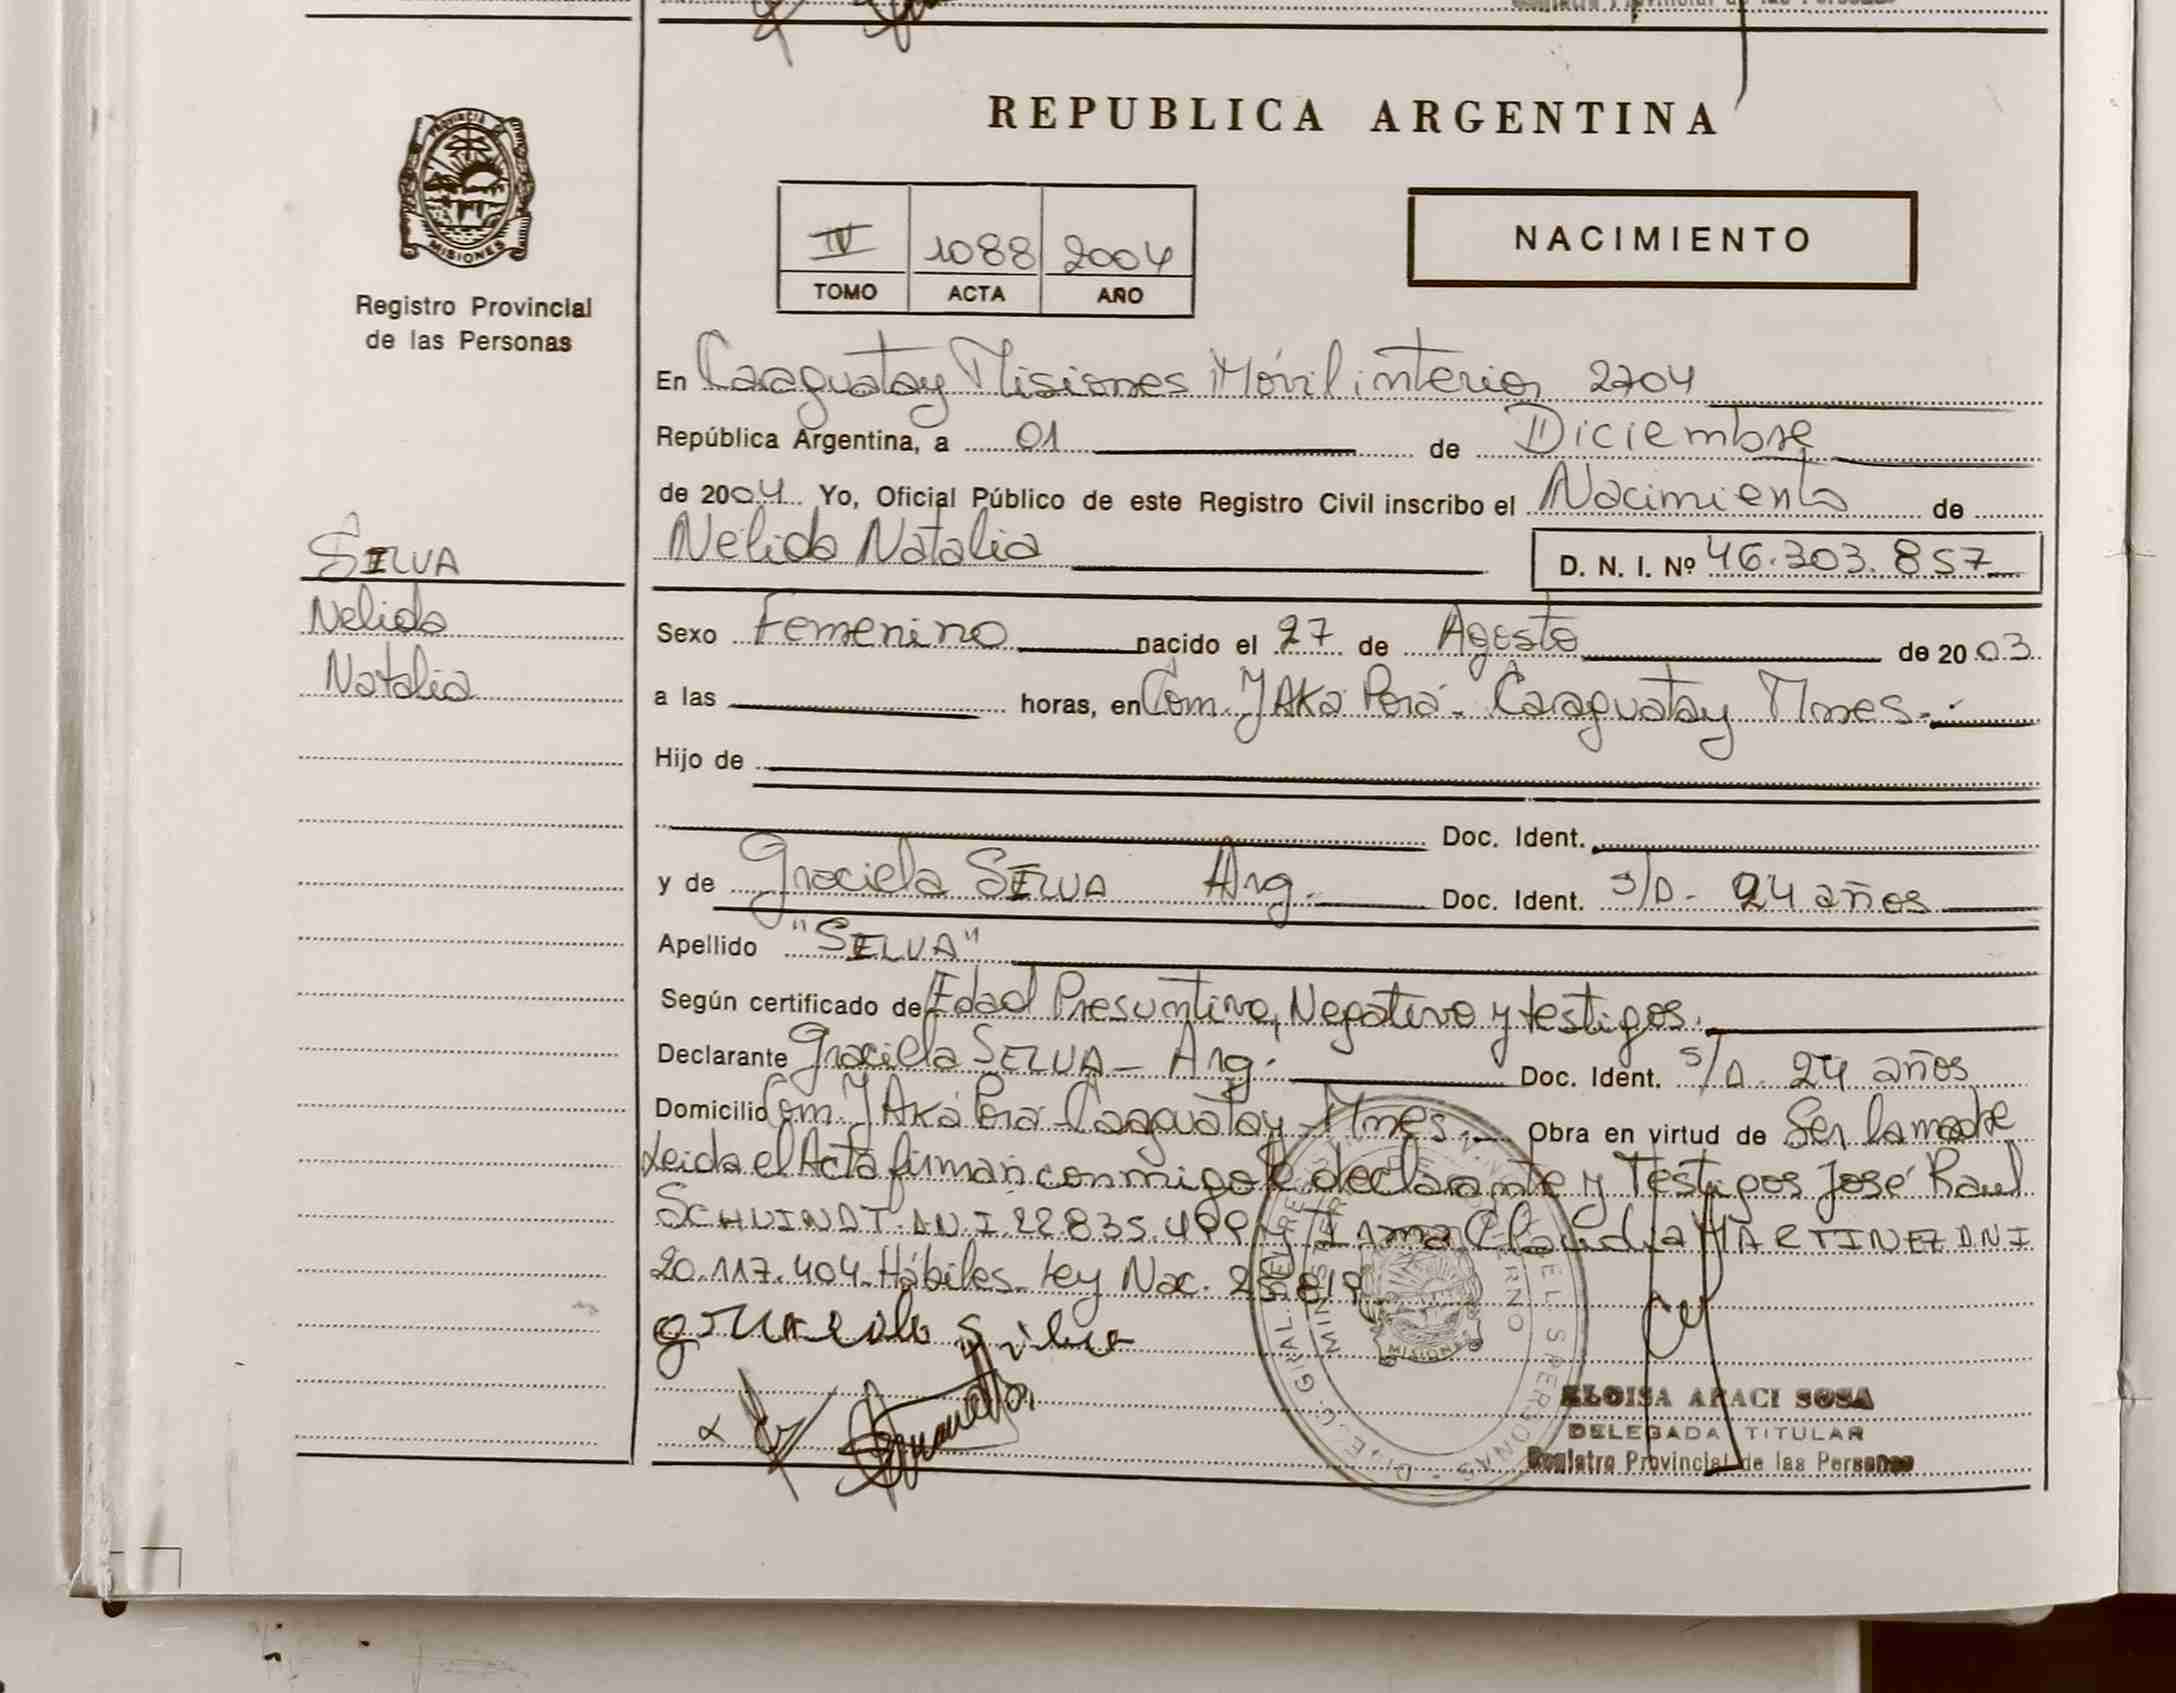 PROVINCIA DE
MISIONES
Registro Provincial
de las Personas
REPUBLICA ARGENTINA
IV 1088 2004
TOMO ACTA AÑO
NACIMIENTO
En Caaguatay Misiones Móvil interior 2704
República Argentina, a 01 de Diciembre
de 2004 Yo, Oficial Público de este Registro Civil inscribo el Nacimiento de
Nélida Natalia D. N. I. Nº 46.303.857
SILVA
Nelida
Natalia
Sexo Femenino nacido el 27 de Agosto de 2003
a las horas, en Com. JAKa Porá - Caaguatay Mnes.-
Hijo de
Doc. Ident.
y de Graciela SILVA Arg. Doc. Ident. S/D - 24 años
Apellido "SILVA"
Según certificado de Edad Presuntiva, Negativo y testigos.
Declarante Graciela SILVA - Arg. Doc. Ident. S/D - 24 años
Domicilio Com. JAKá Porá - Caaguatay - Mnes. Obra en virtud de Ser la madre
Leida el Acta firman conmigo la declarante y Testigos José Raul
SCHVINDT DNI 22.835.499 y Irma Claudia MARTINEZ DNI
20.117.404 Hábiles - Ley Nac. 25819
graciela silva
MISIONES
ELOISA APACI SOSA
DELEGADA TITULAR
Registro Provincial de las Personas